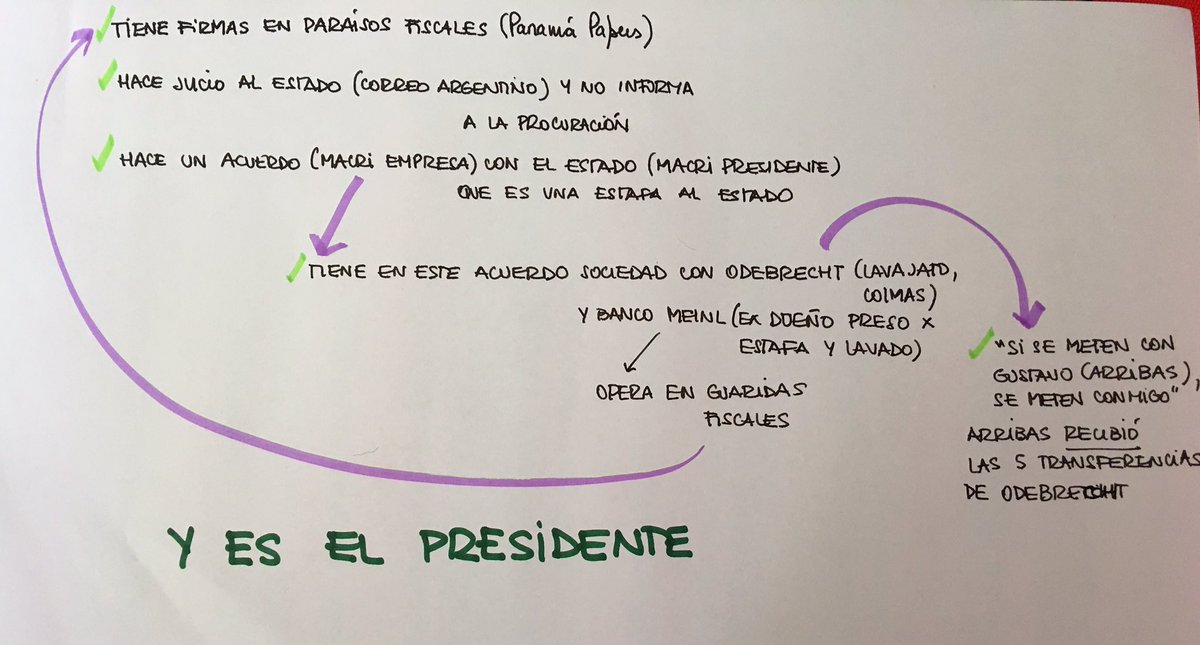 TIENE FIRMAS EN PARAISOS FISCALES (Panamá Papers)
HACE JUCIO AL ESTADO (CORREO ARGENTINO) Y NO INFORMA
A LA PROCURACIÓN
HACE UN ACUERDO (MACRI EMPRESA) CON EL ESTADO (MACRI PRESIDENTE)
QUE ES UNA ESTAFA AL ESTADO
TIENE EN ESTE ACUERDO SOCIEDAD CON ODEBRECHT (LAVAJATO,
COIMAS)
Y BANCO MEINL (EX DUEÑO PRESO X
ESTAFA Y LAVADO)
OPERA EN GUARIDAS
FISCALES
"SI SE METEN CON
GUSTAVO (ARRIBAS),
SE METEN CONMIGO"
ARRIBAS RECIBIÓ
LAS 5 TRANSFERENCIAS
DE ODEBRECHT
Y ES EL PRESIDENTE